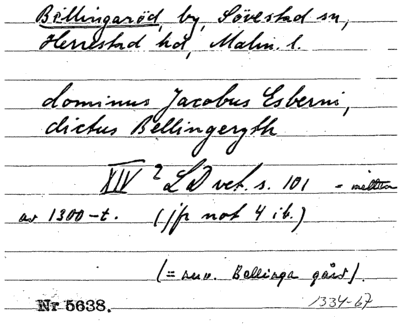 Bellingaröd, by, Sövestad sn,
Herrestad hd, Malm. l.
dominus Jacobus Esberni,
dictus Bellingeryth
XIV 2 LD vet. s. 101 = mitten
av 1300-t. (jfr not 4 ib.)
(= nuv. Bellinga gård).
Nr 5638.
1334-67